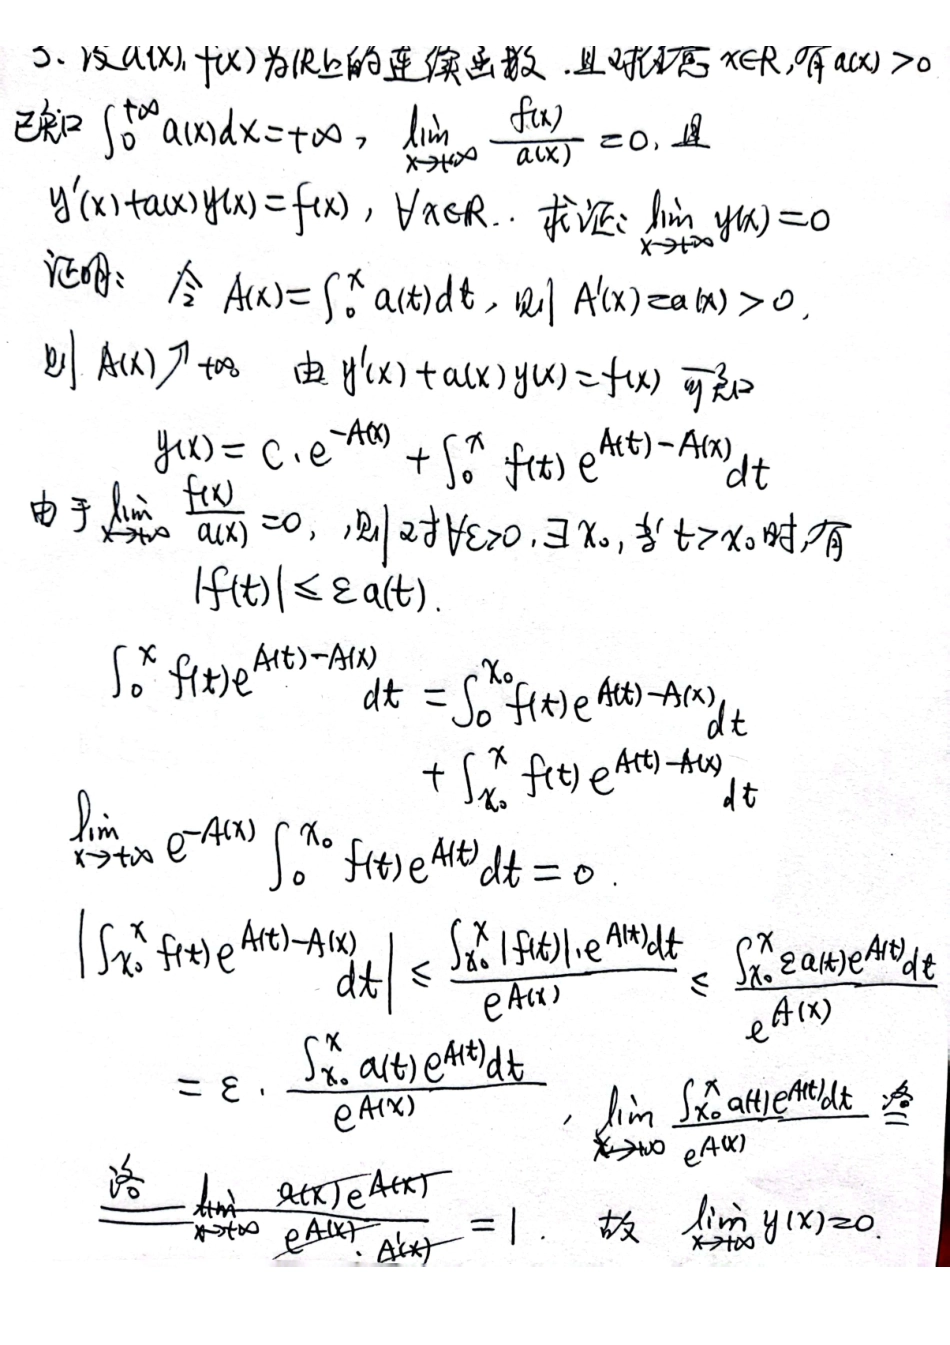 5、设a(x),f(x)为IR上的连续函数.且对任意x∈R,有a(x)>0
已知∫₀^{+∞}a(x)dx=+∞, lim_{x→+∞} f(x)/a(x)=0.且
y'(x)+a(x)y(x)=f(x),∀x∈R..求证:lim_{x→+∞}y(x)=0
证明:令A(x)=∫₀^x a(t)dt,则A'(x)=a(x)>0.
则A(x)↗+∞ 由y'(x)+a(x)y(x)=f(x)可知
y(x)=C·e^{-A(x)}+∫₀^x f(t)e^{A(t)-A(x)}dt
由于lim_{x→+∞} f(x)/a(x)=0,则对∀ε>0,∃x₀,当t>x₀时,有
|f(t)|≤εa(t).
∫₀^x f(t)e^{A(t)-A(x)}dt=∫₀^{x₀}f(t)e^{A(t)-A(x)}dt
+∫_{x₀}^x f(t)e^{A(t)-A(x)}dt
lim_{x→+∞}e^{-A(x)}∫₀^{x₀}f(t)e^{A(t)}dt=0.
|∫_{x₀}^x f(t)e^{A(t)-A(x)}dt|≤∫_{x₀}^x|f(t)|·e^{A(t)}dt/e^{A(x)}≤∫_{x₀}^x εa(t)e^{A(t)}dt/e^{A(x)}
=ε·∫_{x₀}^x a(t)e^{A(t)}dt/e^{A(x)}, lim_{x→+∞}∫_{x₀}^x a(t)e^{A(t)}dt/e^{A(x)} 洛=
洛= lim_{x→+∞} a(x)e^{A(x)}/e^{A(x)}·A'(x)=1. 故 lim_{x→+∞}y(x)=0.